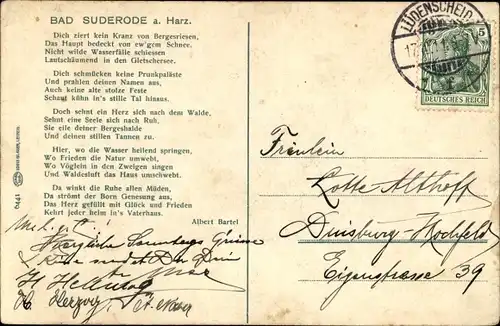 BAD SUDERODE a. Harz.
Dich ziert kein Kranz von Bergesriesen,
Das Haupt bedeckt von ew'gem Schnee.
Nicht wilde Wasserfälle schiessen
Lautschäumend in den Gletschersee.
Dich schmücken keine Prunkpaläste
Und prahlen deinen Namen aus,
Auch keine alte stolze Feste
Schaut kühn in's stille Tal hinaus.
Doch sehnt ein Herz sich nach dem Walde,
Sehnt eine Seele sich nach Ruh,
Sie eile deiner Bergeshalde
Und deinen stillen Tannen zu.
Hier, wo die Wasser heilend springen,
Wo Frieden die Natur umwebt,
Wo Vöglein in den Zweigen singen
Und Waldesluft das Haus umschwebt.
Da winkt die Ruhe allen Müden,
Da strömt der Born Genesung aus,
Das Herz gefüllt mit Glück und Frieden
Kehrt jeder heim in's Vaterhaus.
Albert Bartel
Herzliche Sonntags Grüsse
H. Herzog
LÜDENSCHEID
5
DEUTSCHES REICH
Fräulein
Lotte Althoff
Duisburg Hochfeld
Eigenstrasse 39